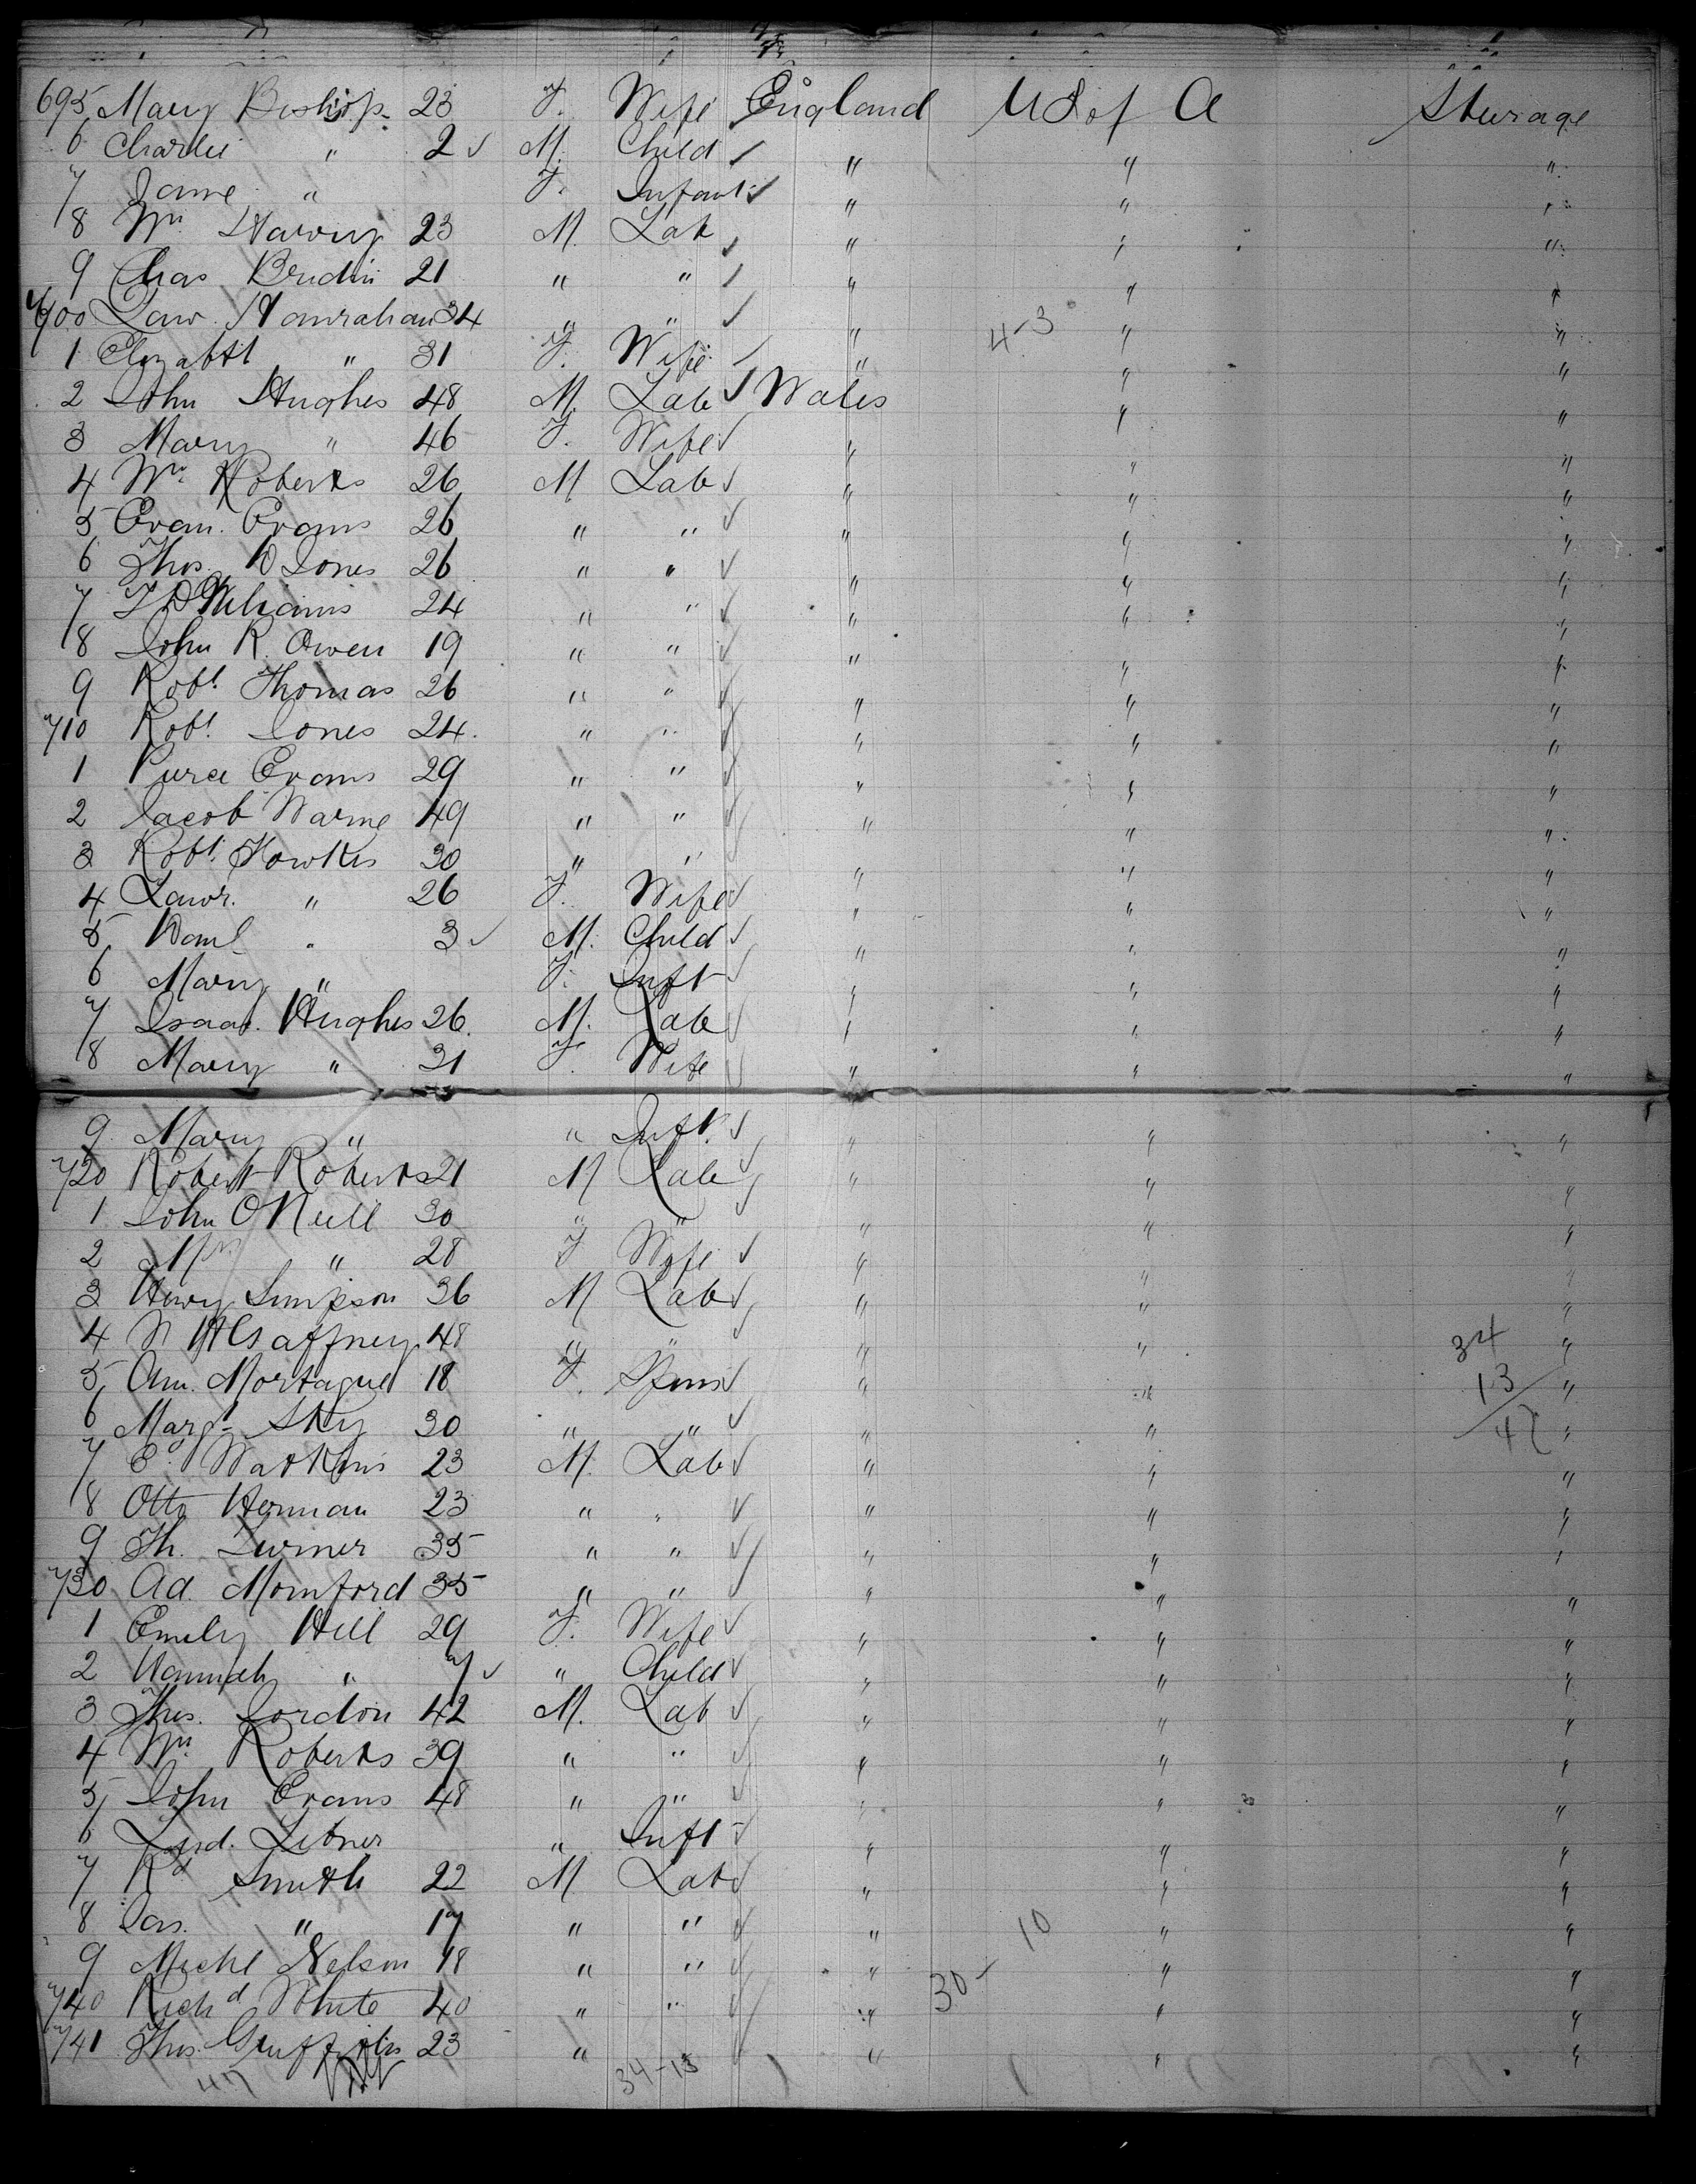 695 Mary Bishop 23 F. Wife England U S of A Steerage
6 Charlie " 2 ✓ M. Child ✓ " " "
7 Jane " F. Infant ✓ " " "
8 Wm Harvey 23 M. Lab ✓ " " "
9 Chas 21 " " ✓ " " "
700 Law. Hanrahan 34 " " ✓ " 4-3 " "
1 Elizabth " 31 F. Wife ✓ " " "
2 John Hughes 48 M. Lab ✓ Wales " "
3 Mary " 46 F. Wife ✓ " " "
4 Wm Roberts 26 M Lab ✓ " " "
5 Evan. Evans 26 " " ✓ " " "
6 Thos D Jones 26 " " ✓ " " "
7 Williams 24 " " ✓ " " "
8 John R. Owen 19 " " ✓ " " "
9 Robt. Thomas 26 " " ✓ " " "
710 Robt. Jones 24. " " ✓ " " "
1 Evans 29 " " ✓ " " "
2 Jacob Warne 49 " " ✓ " " "
3 Robt. Fowkes 30 " " ✓ " " "
4 Lawr. " 26 F. Wife ✓ " " "
5 Danl " 3 ✓ M. Child ✓ " " "
6 Mary " F. Inft ✓ " " "
7 Isaac. Hughes 26. M. Lab ✓ " " "
8 Mary " 31 F. Wife ✓ " " "
9 Mary " " Inft. ✓ " " "
720 Robert Roberts 21 M Lab ✓ " " "
1 John O'Neill 30 " " " " "
2 Mrs " 28 F Wife ✓ " " "
3 Henry Simpson 36 M Lab ✓ " " "
4 48 " " " " 34 "
5 18 F. Spins ✓ " " 13 "
6 Margt 30 " " ✓ " " 47 "
7 E. Watkins 23 M. Lab ✓ " " "
8 Otto Herman 23 " " ✓ " " "
9 Th. Turner 35 " " ✓ " " "
730 Ad. Momford 35 " " " " "
1 Emily Hill 29 F. Wife ✓ " " "
2 Hannah " 7 ✓ " Child ✓ " " "
3 Thos. Jordon 42 M. Lab ✓ " " "
4 Wm Roberts 39 " " ✓ " " "
5 John Evans 48 " " ✓ " " "
6 " Inft ✓ " " "
7 Rd Smith 22 M Lab ✓ " " "
8 Jas. " 17 " " ✓ " 10 " "
9 Michl Nelson 18 " " ✓ " " "
740 Richd White 40 " " ✓ " 30- " "
741 Thos. Griffiths 23 " ✓ " " "
47 34-13